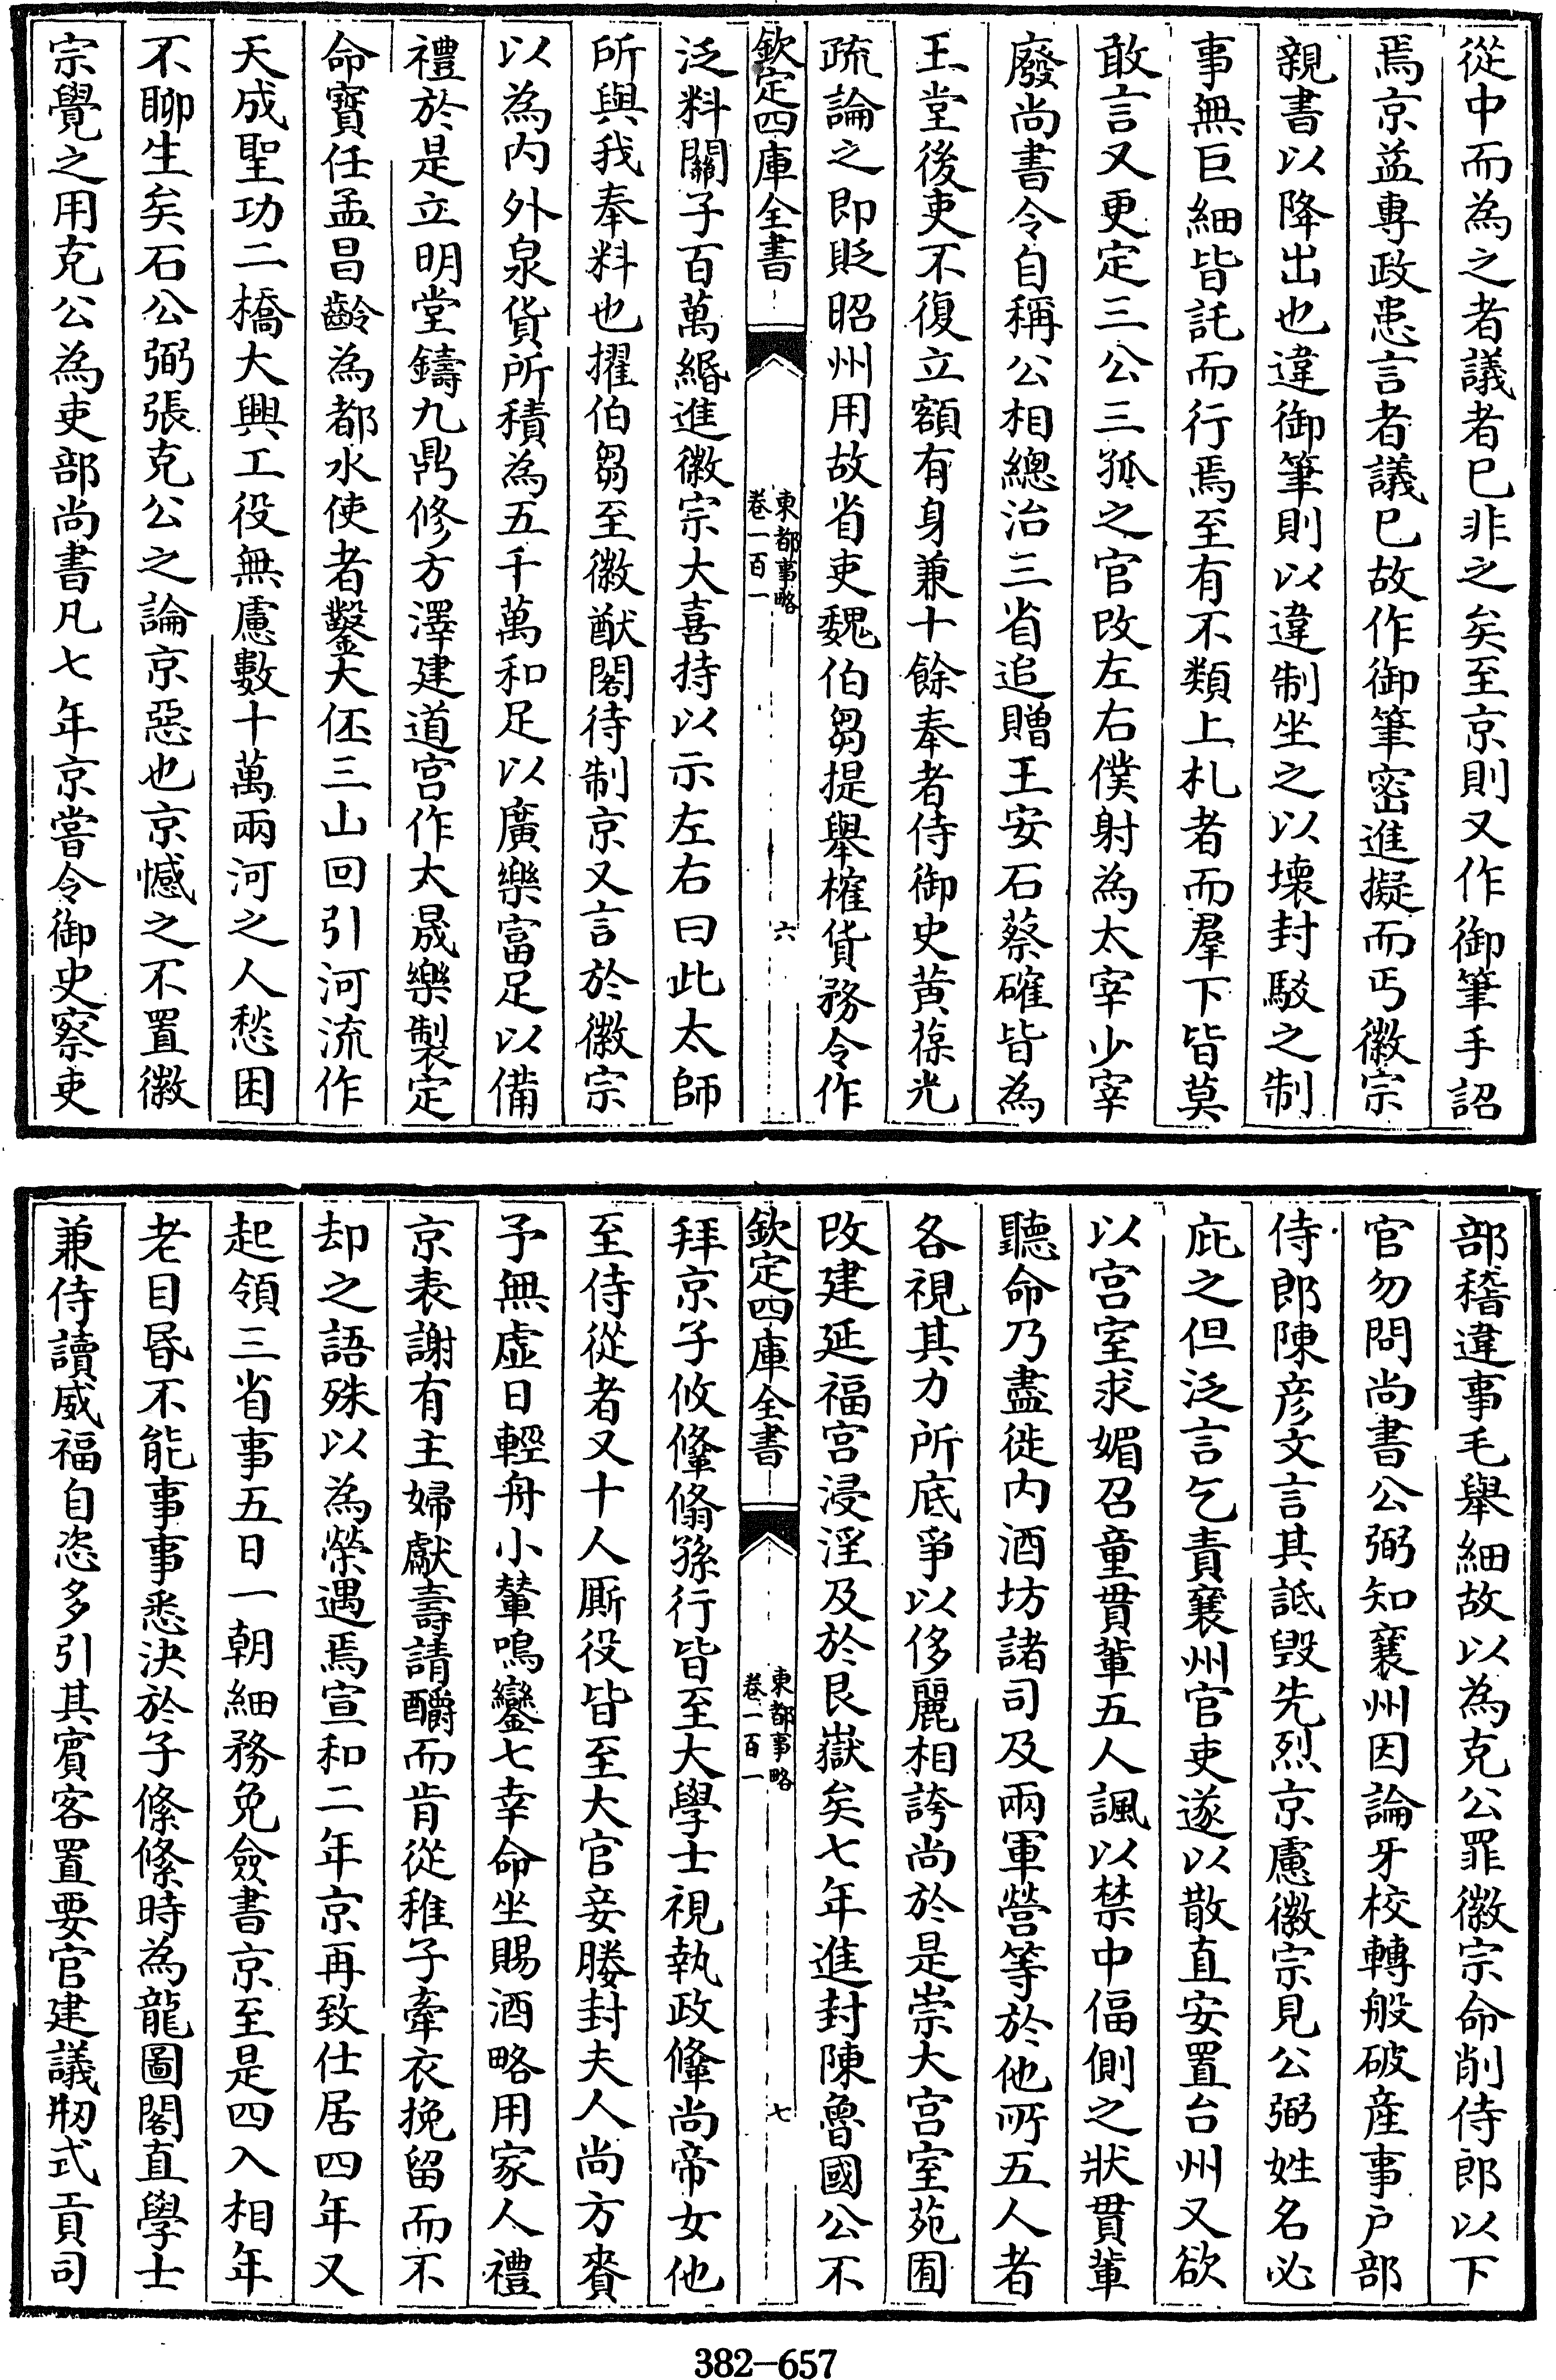 從中而為之者議者已非之矣至京則又作御筆手詔
焉京益專政患言者議已故作御筆密進擬而丐徽宗
親書以降出也違御筆則以違制坐之以壞封駁之制
事無巨細皆託而行焉至有不類上札者而羣下皆莫
敢言又更定三公三孤之官改左右僕射為太宰少宰
廢尚書令自稱公相總治三省追贈王安石蔡確皆為
王堂後吏不復立額有身兼十餘奉者侍御史黄葆光
疏論之即貶昭州用故省吏魏伯芻提舉榷貨務令作
欽定四庫全書
東都事略
卷一百一
六
泛料關子百萬緡進徽宗大喜持以示左右曰此太師
所與我奉料也擢伯芻至徽猷閣待制京又言於徽宗
以為内外泉貨所積為五千萬和足以廣樂富足以備
禮於是立明堂鑄九鼎修方澤建道宫作大晟樂製定
命寶任孟昌齡為都水使者鑿大伾三山回引河流作
天成聖功二橋大興工役無慮數十萬兩河之人愁困
不聊生矣石公弼張克公之論京惡也京憾之不置徽
宗覺之用克公為吏部尚書凡七年京嘗令御史察吏
部稽違事毛舉細故以為克公罪徽宗命削侍郎以下
官勿問尚書公弼知襄州因論牙校轉般破產事户部
侍郎陳彦文言其詆毁先烈京慮徽宗見公弼姓名必
庇之但泛言乞責襄州官吏遂以散直安置台州又欲
以宫室求媚召童貫輩五人諷以禁中偪側之狀貫輩
聽命乃盡徙内酒坊諸司及兩軍營等於他所五人者
各視其力所底爭以侈麗相誇尚於是崇大宫室苑囿
改建延福宫浸淫及於艮嶽矣七年進封陳魯國公不
欽定四庫全書
東都事略
卷一百一
七
拜京子攸鞗翛孫行皆至大學士視執政鞗尚帝女他
至侍從者又十人厮役皆至大官妾媵封夫人尚方賚
予無虚日輕舟小輦鳴鑾七幸命坐賜酒略用家人禮
京表謝有主婦獻壽請釂而肯從稚子牽衣挽留而不
却之語殊以為榮遇焉宣和二年京再致仕居四年又
起領三省事五日一朝細務免僉書京至是四入相年
老目昬不能事事悉決於子絛絛時為龍圖閣直學士
兼侍讀威福自恣多引其賓客置要官建議剏式貢司
382-657